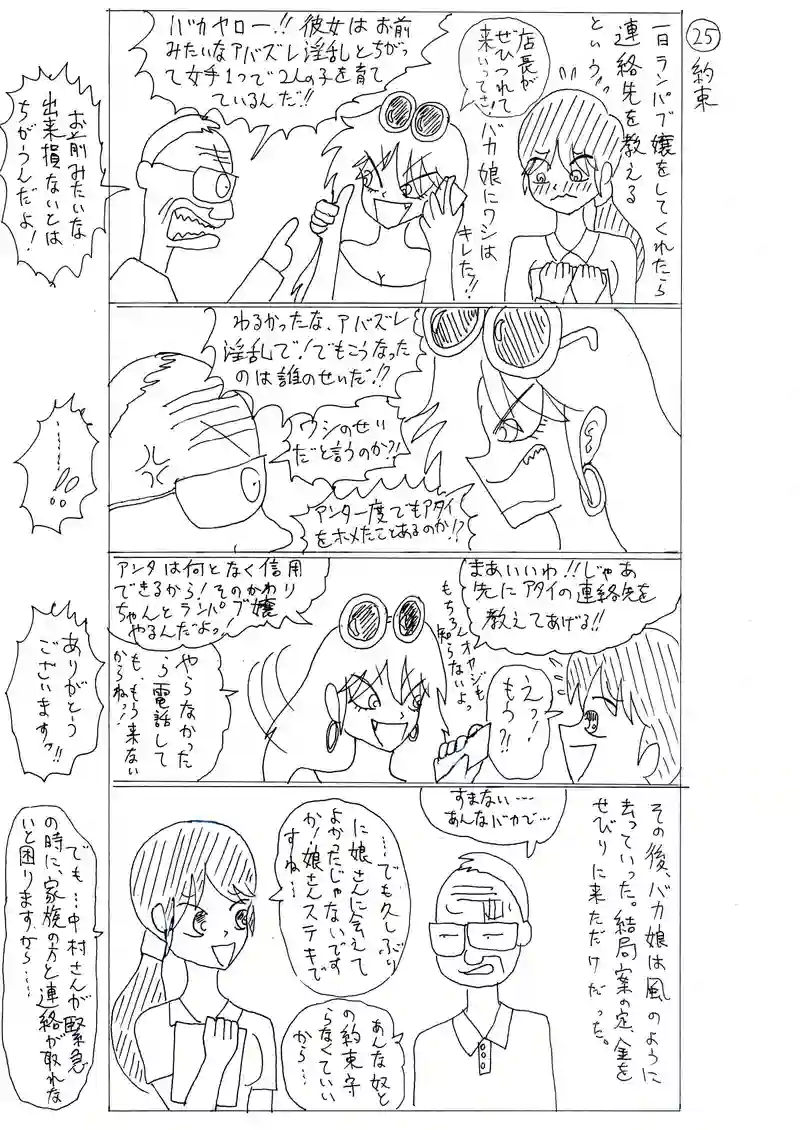 ㉕ 約束
一日ランパブ嬢をしてくれたら
連絡先を教える
という
店長が
ぜひつれて
来いってさ!
バカ娘にワシは
キレた!!
バカヤロー!! 彼女はお前
みたいなアバズレ淫乱とちがっ
て女手1つで2人の子を育て
ているんだ!!
お前みたいな
出来損ないとは
ちがうんだよ!
わるかったな、アバズレ
淫乱で!でもこうなった
のは誰のせいだ!?
ワシのせい
だと言うのか?!
アンタ一度でもアタイ
をホメたことあるのか!?
……!!
まあいいわ!!じゃあ
先にアタイの連絡先を
教えてあげる!!
えっ!
もう?!
オヤジも
もちろん知らないよ
アンタは何となく信用
できるから!そのかわり
ちゃんとランパブ嬢
やるんだよっ!
やらなかった
ら電話して
も、もう来ない
からねっ!
ありがとう
ございますっ!!
その後、バカ娘は風のように
去っていった。結局案の定、金を
せびりに来ただけだった。
すまない……
あんなバカで…
…でも久しぶり
に娘さんに会えて
よかったじゃないです
か!娘さんステキで
すね……
あんな奴と
の約束守
らなくていい
から…
でも…中村さんが緊急
の時に、家族の方と連絡が取れな
いと困りますから……